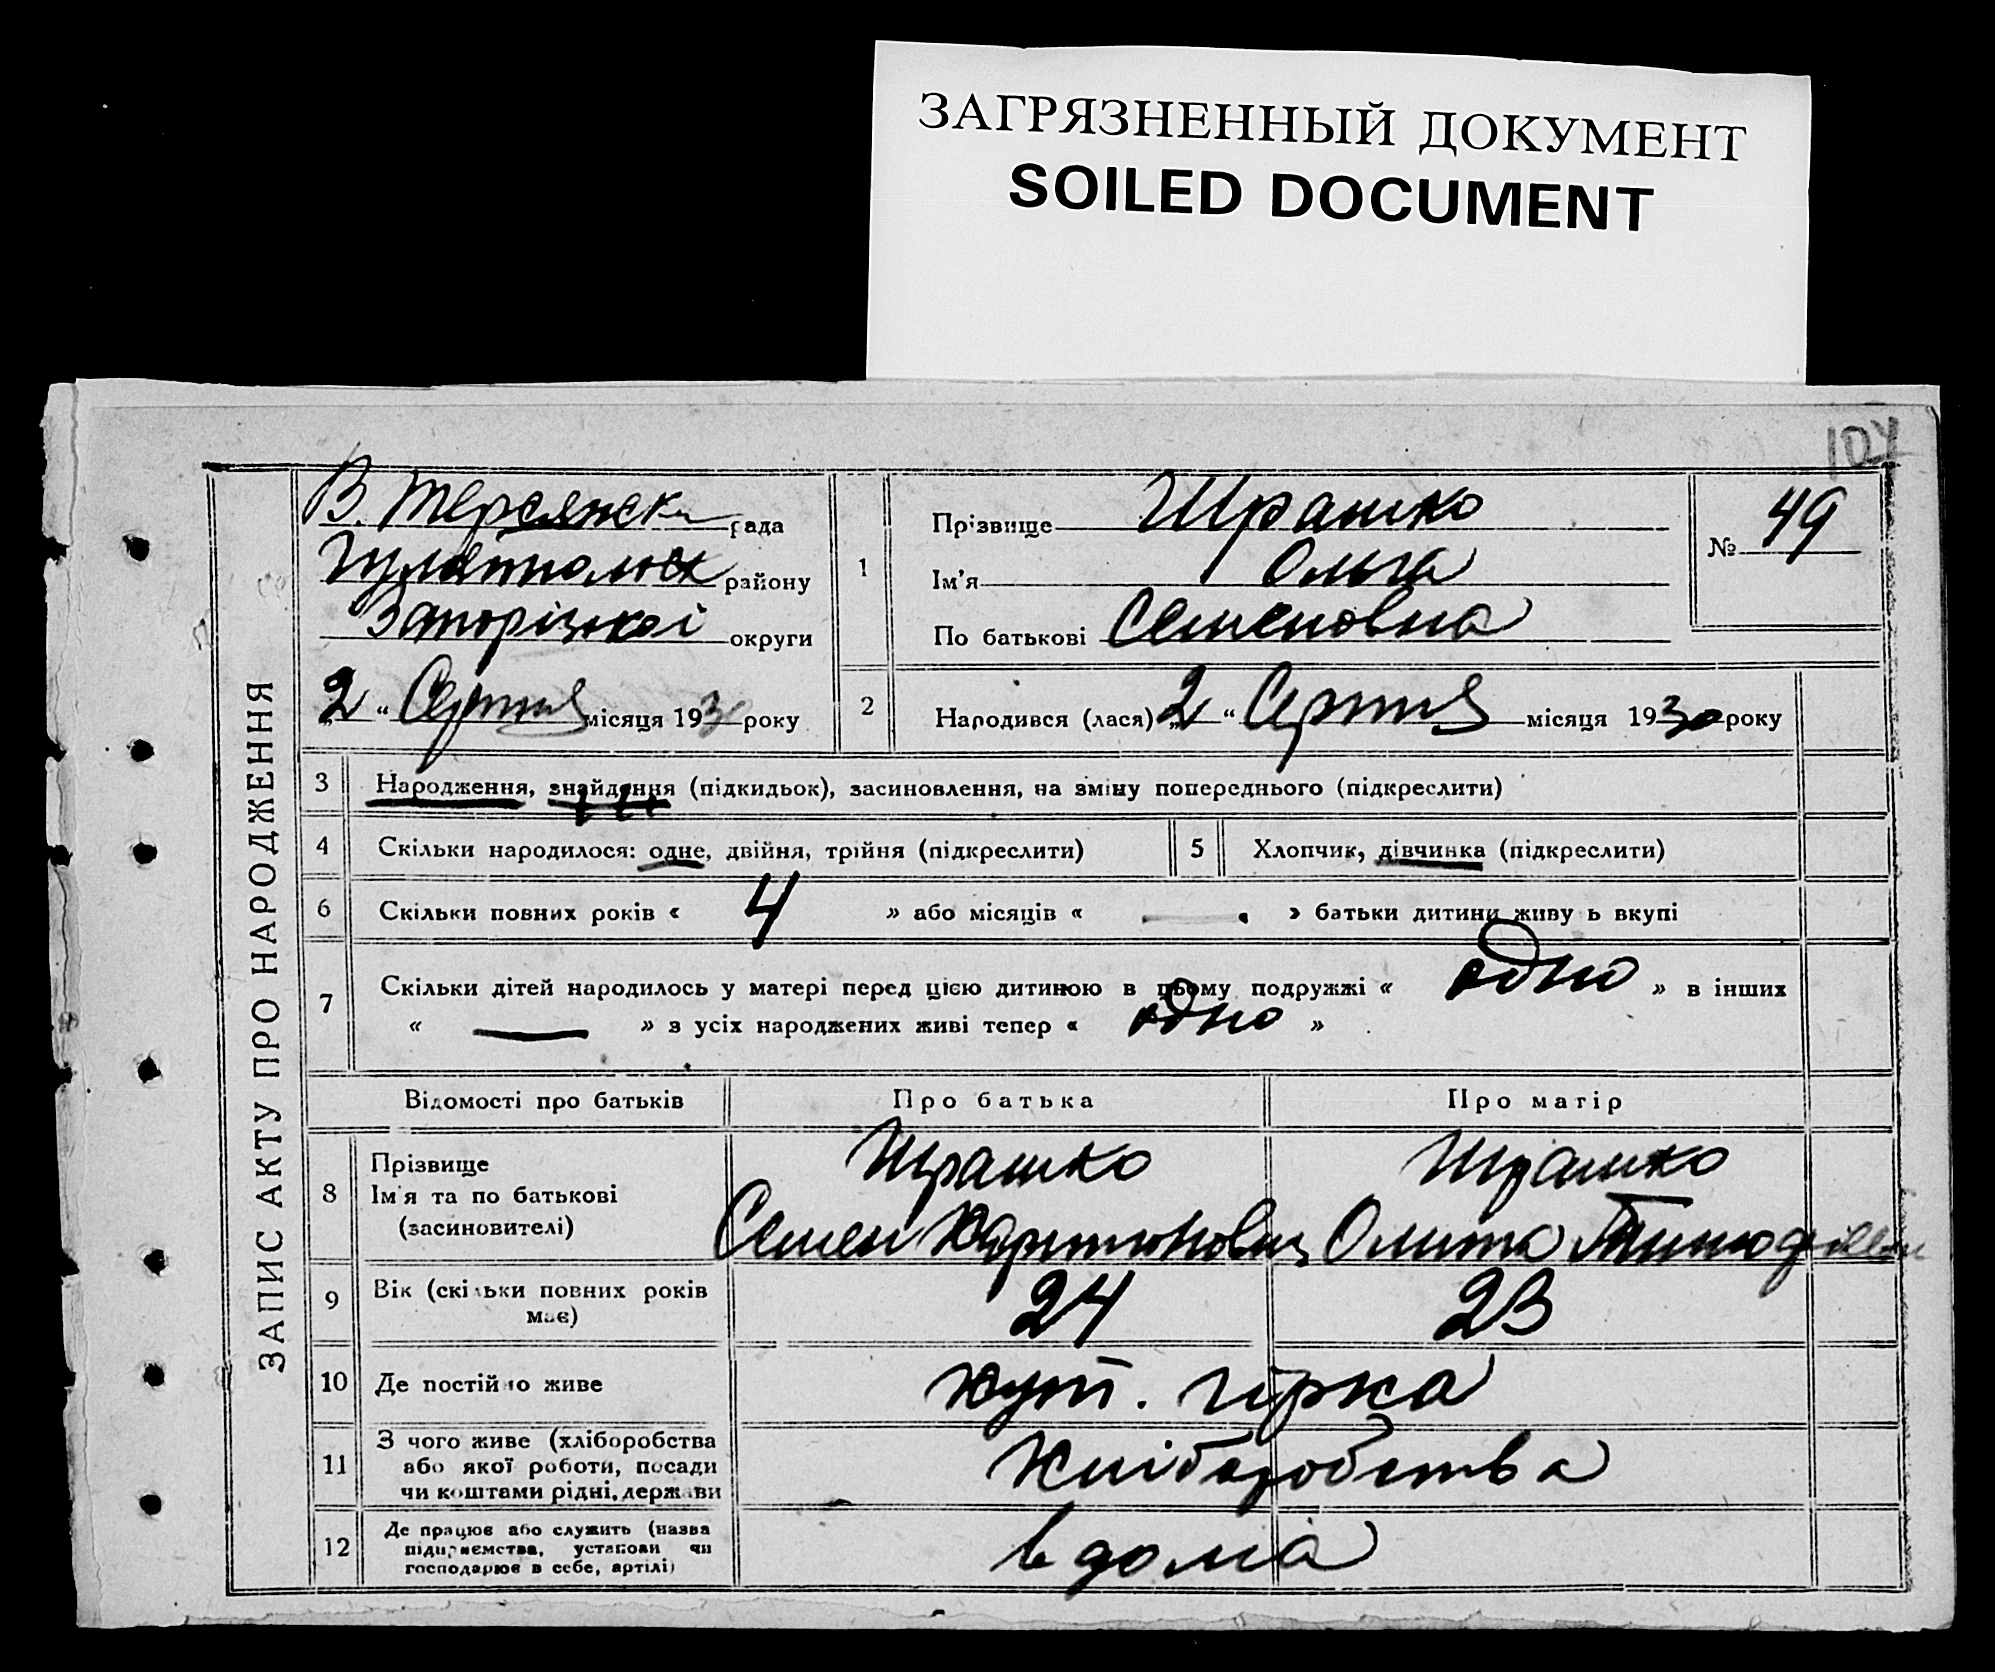 ЗАГРЯЗНЕННЫЙ ДОКУМЕНТ
SOILED DOCUMENT
104
ЗАПИС АКТУ ПРО НАРОДЖЕННЯ
В. Терсянськ рада
Гуляйпольськ району
Запорізької округи
„2“ Серпня місяця 1930 року
1
Прізвище Шрамко
Ім'я Ольга
По батькові Семеновна
№ 49
2 Народився (лася) „2“ Серпня місяця 1930 року
3 Народження, знайдення (підкидьок), засиновлення, на зміну попереднього (підкреслити)
4 Скільки народилося: одне, двійня, трійня (підкреслити)
5 Хлопчик, дівчинка (підкреслити)
6 Скільки повних років « 4 » або місяців « — » батьки дитини живуть вкупі
7 Скільки дітей народилось у матері перед цією дитиною в цьому подружжі « одно » в інших
« — » з усіх народжених живі тепер « одно »
Відомості про батьків Про батька Про матір
8 Прізвище Шрамко Шрамко
Ім'я та по батькові Семен
(засиновителі)
9 Вік (скільки повних років 24 23
має)
10 Де постійно живе хут. Гірка
11 З чого живе (хліборобства Хліборобства
або якої роботи, посади
чи коштами рідні, держави
12 Де працює або служить (назва в дома
підприємства, установи чи
господарює в себе, артілі)